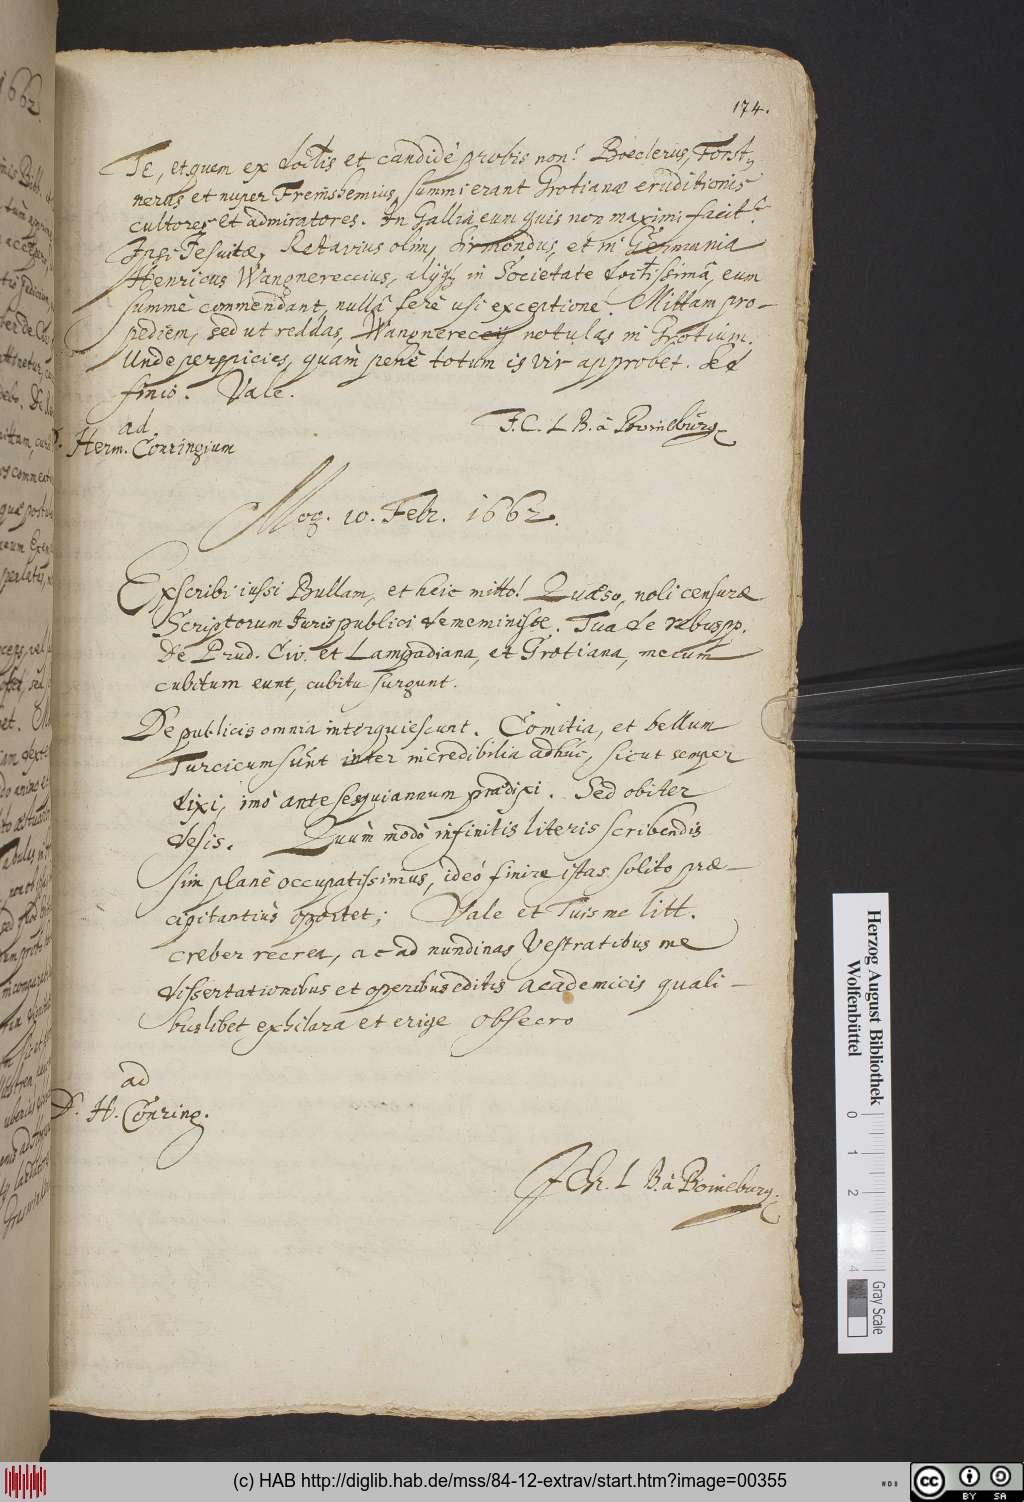 174.
Te, et quem ex doctis et candidè probis non? Boeclerus, Forst-
nerus et nuper Freinshemius, summi erant Grotianæ eruditionis
cultores et admiratores. In Gallia eum quis non maximi facit?
Ipsi Jesuitæ, Petavius olim, Sirmondus, et in Germania
Henricus Wangnereccius, alijq; in Societate doctissimâ, eum
summè commendant, nullâ ferè usi exceptione. Mittam pro-
pediem, sed ut reddas, Wangnereccij notulas in Grotium.
Unde perspicies, quàm penè totum is vir approbet. Sed
finio. Vale.
J. C. L. B. à Boineburg
ad
D. Herm. Conringium
Mog. 10. Febr. 1662.
Exscribi iussi Bullam, et heic mitto! Quæso, noli censuræ
Scriptorum Iuris publici dememinisse. Tua de rebuspp.
De Prud. Civ. et Lampadiana, et Grotiana, mecum
cubitum eunt, cubitu surgunt.
De publicis omnia interquiescunt. Comitia, et bellum
Turcicum sunt inter incredibilia adhuc, sicut semper
dixi, imò ante sesquiannum prædixi. Sed obiter
desis. Quum modò infinitis literis scribendis
sim planè occupatissimus, ideó finire istas solito præ-
cipitantius oportet; Vale et Tuis me litt.
creber recrea, ac ad nundinas Vestratibus me
dissertationibus et operibus editis academicis quali-
buslibet exhilara et erige obsecro
ad
D. H. Conring.
J Ch. L B. à Boineburg.
Herzog August Bibliothek
Wolfenbüttel
0 1 2 4
Gray Scale
(c) HAB http://diglib.hab.de/mss/84-12-extrav/start.htm?image=00355
CC BY SA